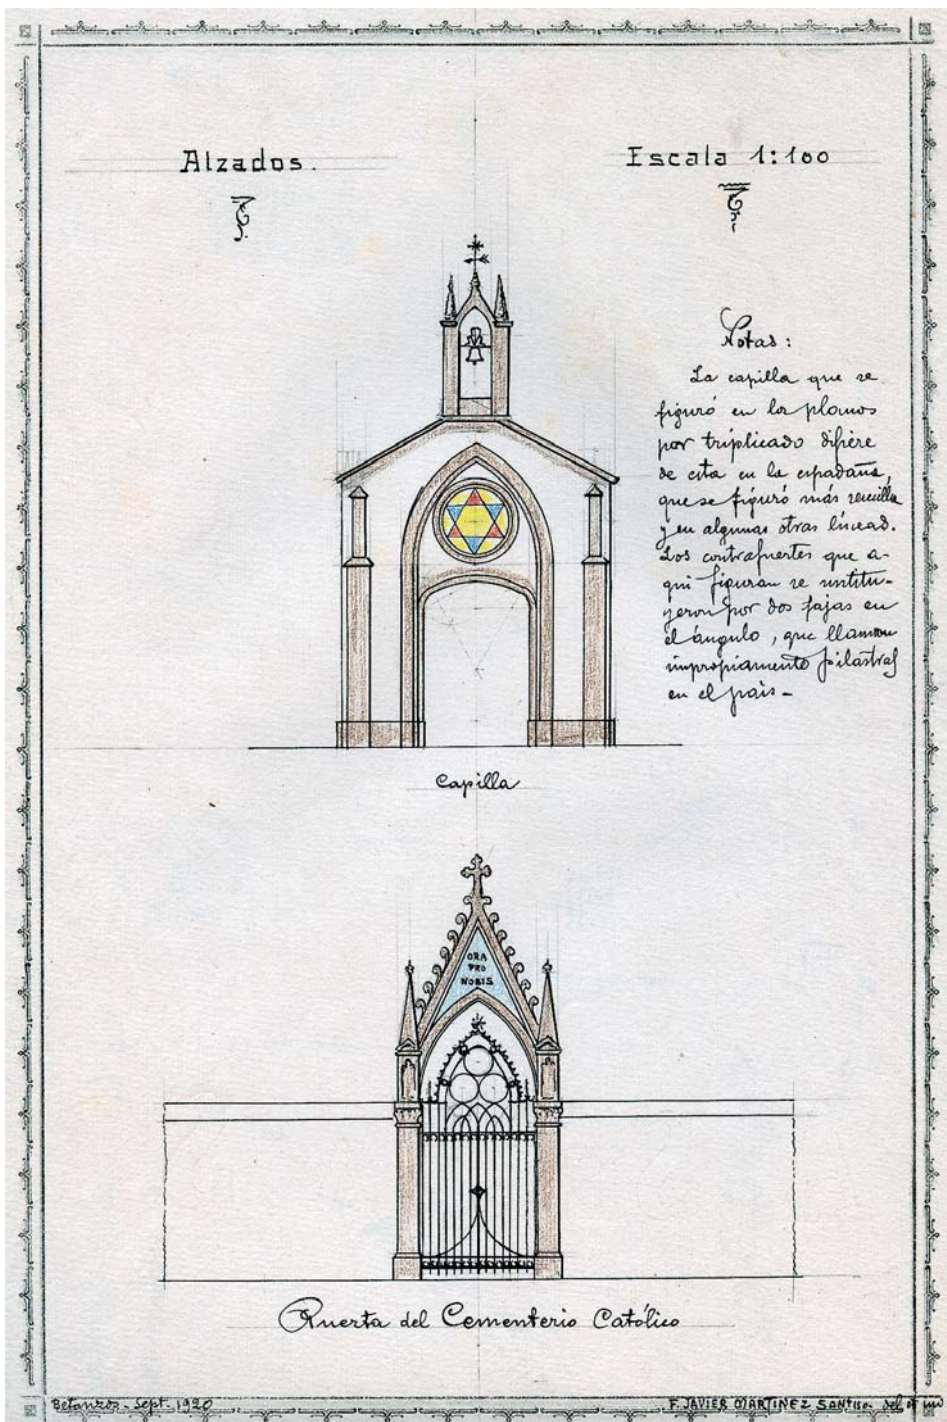 Alzados.
Escala 1:100
Notas:
La capilla que se
figuró en los planos
por triplicado difiere
de esta en la espadaña,
que se figuró más sencilla
y en algunas otras líneas.
Los contrafuertes que a-
quí figuran se sustitu-
yeron por dos fajas en
el ángulo, que llaman
impropiamente pilastras
en el país -
Capilla
ORA
PRO
NOBIS
Puerta del Cementerio Católico
Betanzos - Sept. 1920
F. JAVIER MARTINEZ SANTISO